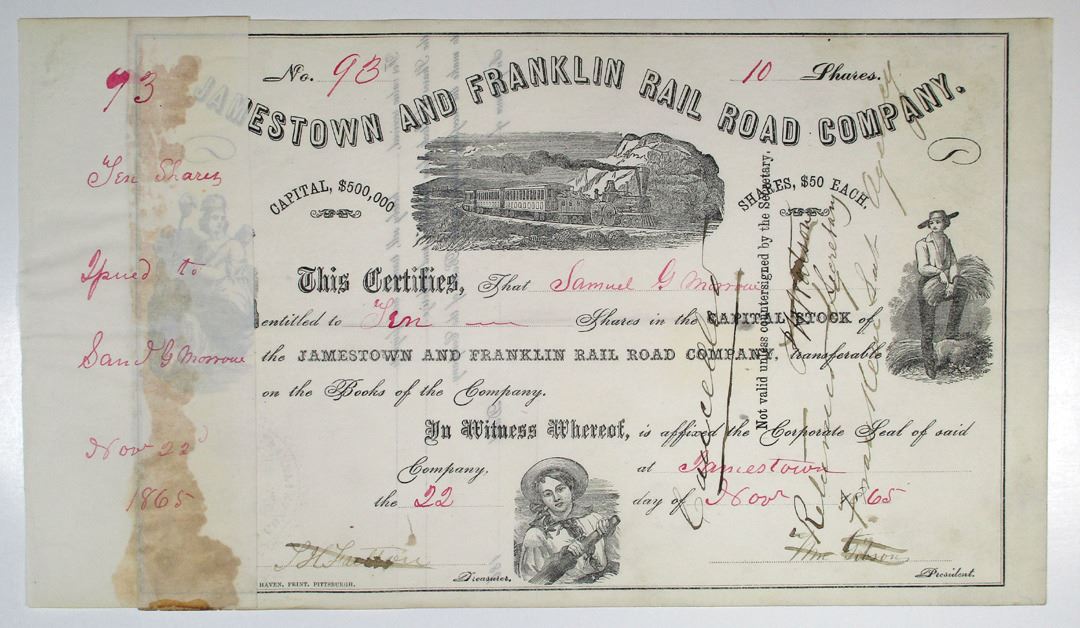 93
Ten Shares
Issued to
Sam'l G Morrow
Nov 22d
1865
No. 93
10 Shares.
JAMESTOWN AND FRANKLIN RAIL ROAD COMPANY.
CAPITAL, $500,000
SHARES, $50 EACH.
This Certifies, That Samuel G Morrow
entitled to Ten Shares in the CAPITAL STOCK of
the JAMESTOWN AND FRANKLIN RAIL ROAD COMPANY, transferable
on the Books of the Company.
In Witness Whereof, is affixed the Corporate Seal of said
Company, at Jamestown
the 22 day of Nov 65
Treasurer.
Wm Gibson
President.
HAVEN, PRINT. PITTSBURGH.
Not valid unless countersigned by the Secretary.
Secretary
Cancelled